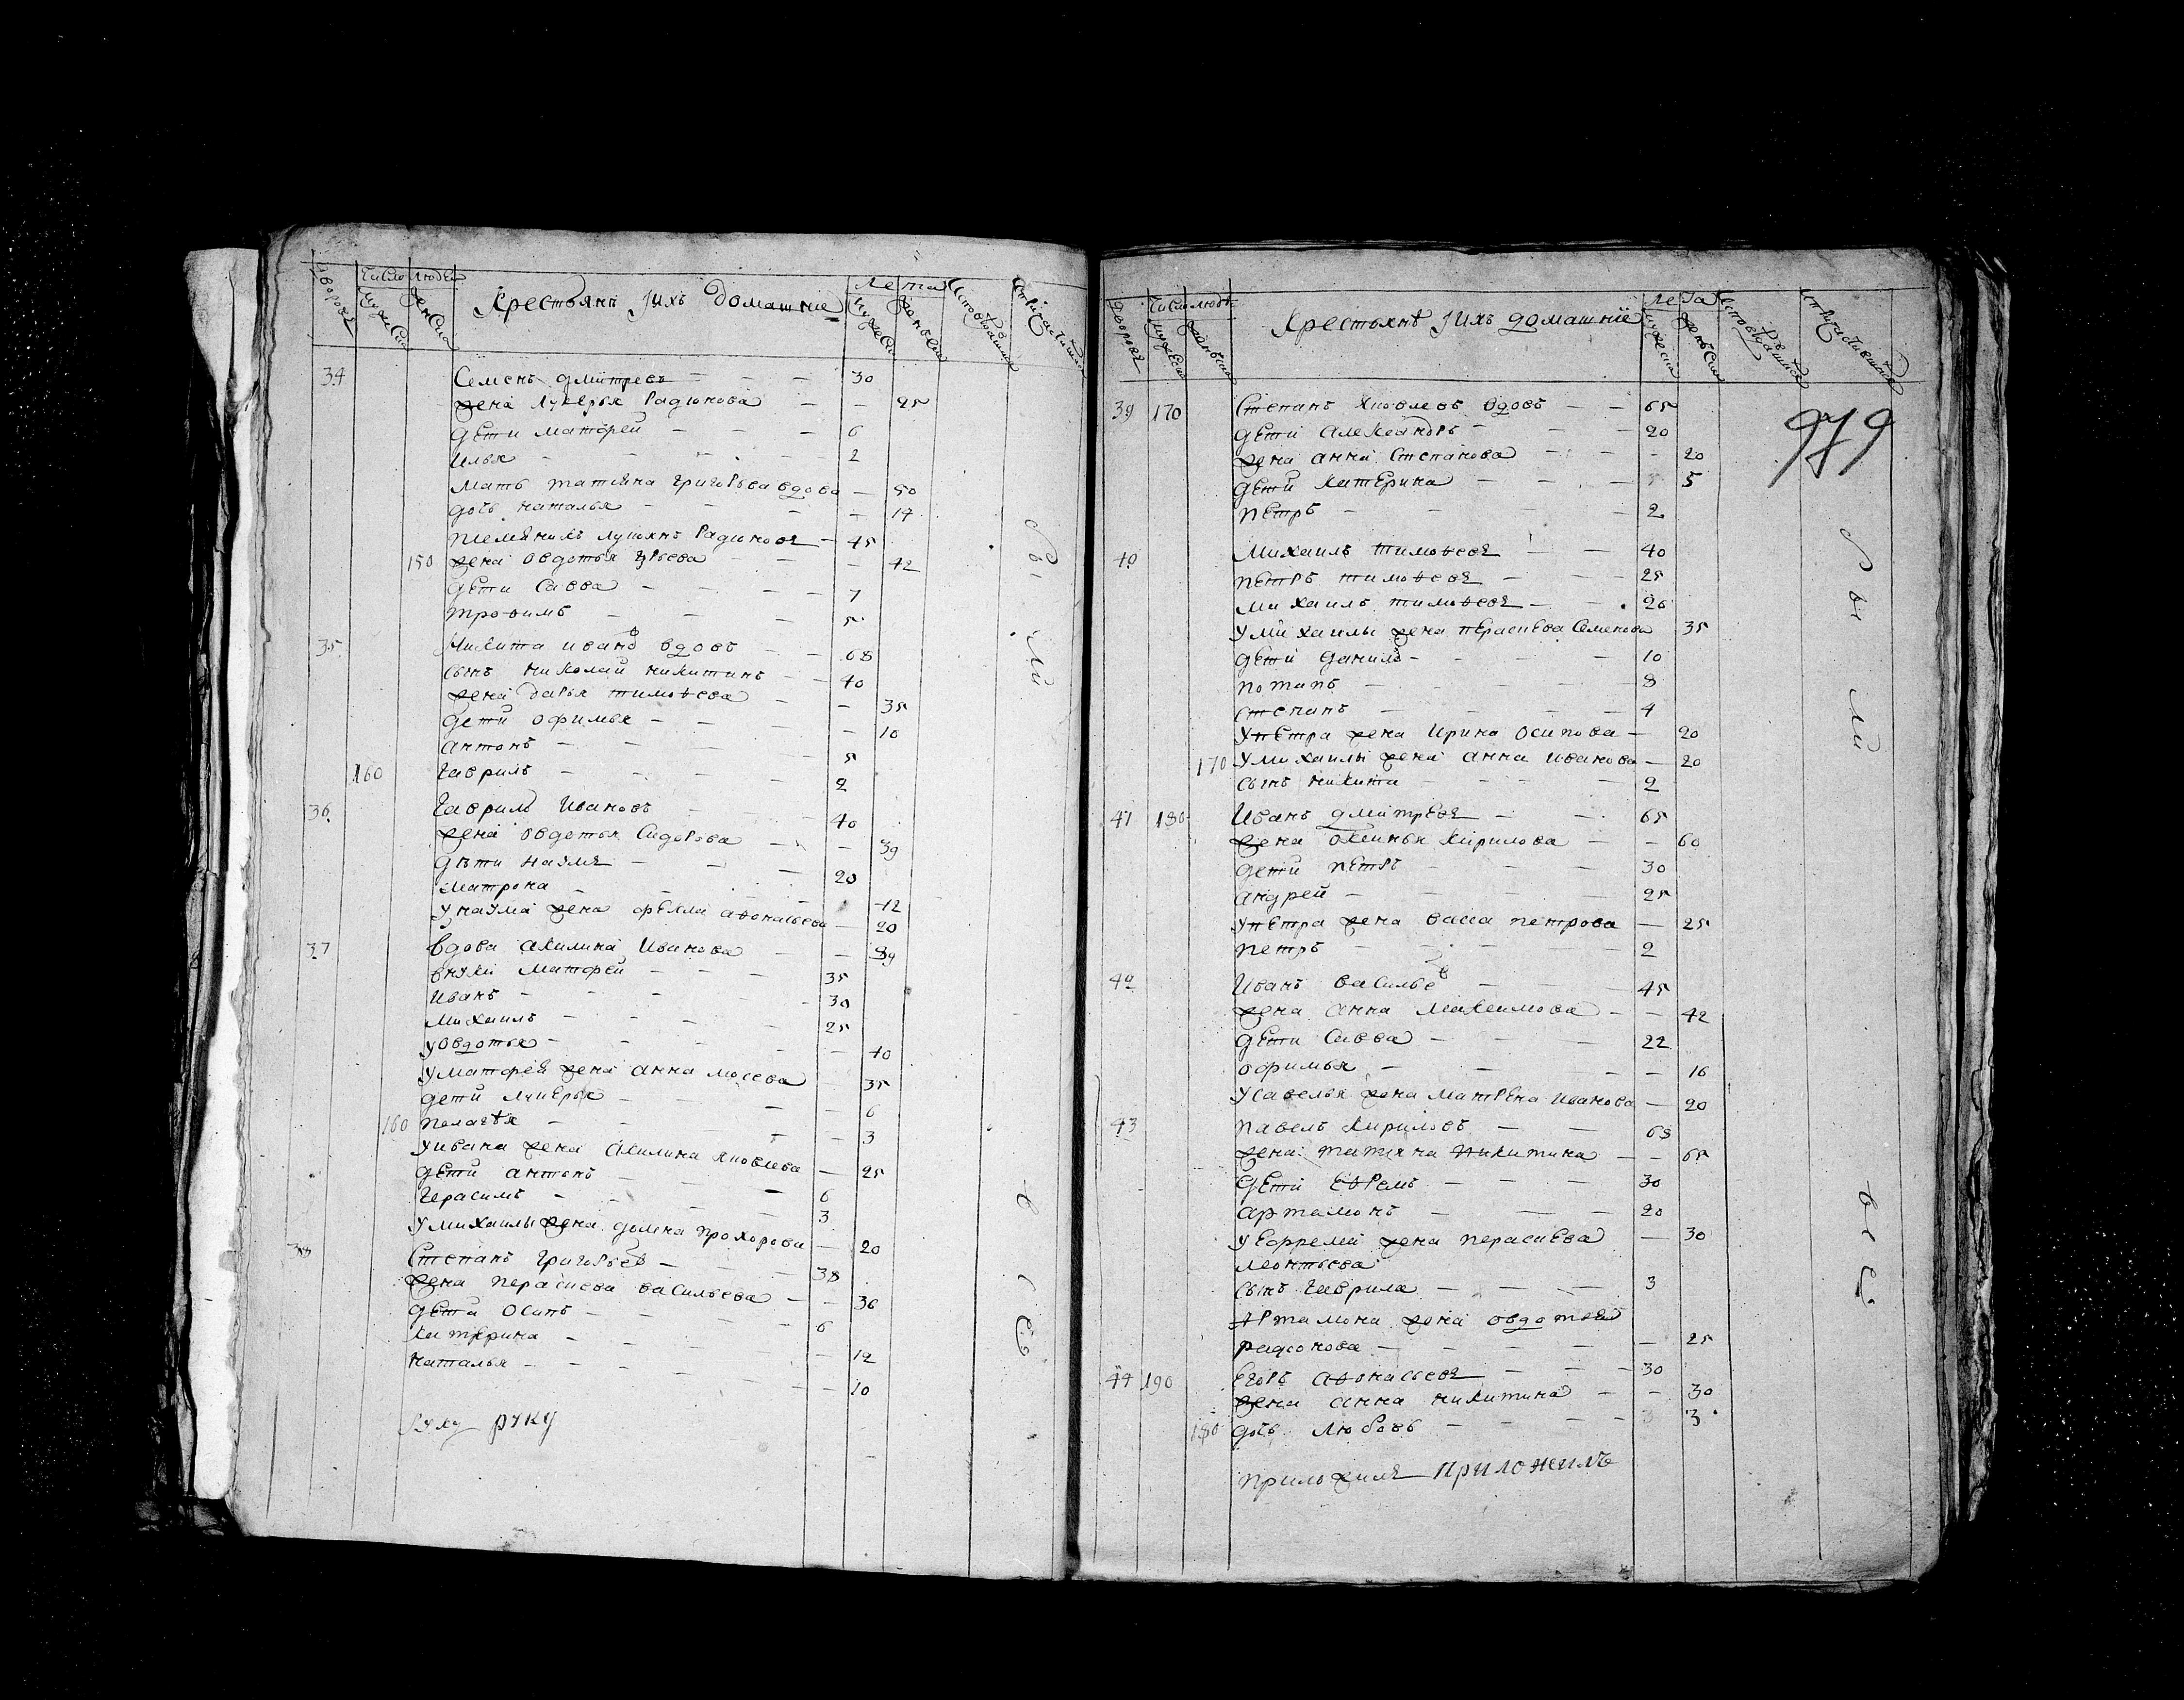 Дворовъ Число людей Лета
мужеска женска Крестьянъ Iихъ домашнiе мужеска женъска
34 Семенъ дмитревъ 30
жена лукерья Радионова 25
дети матфей 6
илья 2
мать татияна григорьева вдова 50
дочь наталья 17
племяникъ лукоянъ Радионовъ 45
150 жена овдотья 42
дети Савва 7
троѳимъ 5
35 Никита ивановъ вдовъ 68
сынъ николай никитинъ 40
жена дарья тимоѳеева 35
дети офимья 10
антонъ 5
160 гаврилъ 2
36 Гаврилъ Ивановъ 40
жена овдотья Сидорова 39
дети наумъ 20
матрона 12
у наума жена фекла аѳонасьева 20
37 вдова акилина Иванова 89
внуки матфей 35
Иванъ 30
михаилъ 25
у овдотьи 40
у матфея жена анна мосеева 35
дети лукерья 6
160 пелагея 3
у ивана жена акилина яковлева 25
дети антонъ 6
герасимъ 3
у михаилы жена домна прохорова 20
38 Степанъ григорьевъ 38
жена парасиева васильева 36
дети осипъ 6
катерина 12
наталья 10
руку руку
были
979
Дворовъ Число людей Лета
мужеска женъска Крестьянъ Iихъ домашнiе мужеска женъска
39 170 Степанъ яковлевъ вдовъ 65
дети александръ 20
жена анна Степанова 20
дети катерина 5
петръ 2
40 Михаилъ тимоѳеевъ 40
петръ тимоѳеевъ 25
михаилъ тимоѳеевъ 26
у михаилы жена перасиева Семенова 35
дети данилъ 10
потапъ 8
степанъ 4
у петра жена Ирина осипова 20
170 у михаилы жена анна иванова 20
сынъ никита 2
41 180 Иванъ дмитревъ 65
жена оксинья кирилова 60
дети петръ 30
андрей 25
у петра жена васса петрова 25
петръ 2
42 Иванъ васильевъ 45
жена анна максимова 42
дети Савва 22
офимья 16
у савелья жена матрена иванова 20
43 павелъ кириловъ 68
жена татияна никитина 65
дети еѳремъ 30
артамонъ 20
у ефремя жена перасиева 30
леонтьева
сынъ гаврила 3
артамона жена овдотья
радионова 25
44 190 егоръ аѳонасьевъ 30
жена анна никитина 30
180 дочь любовь 3
приложилъ приложилъ
были
все